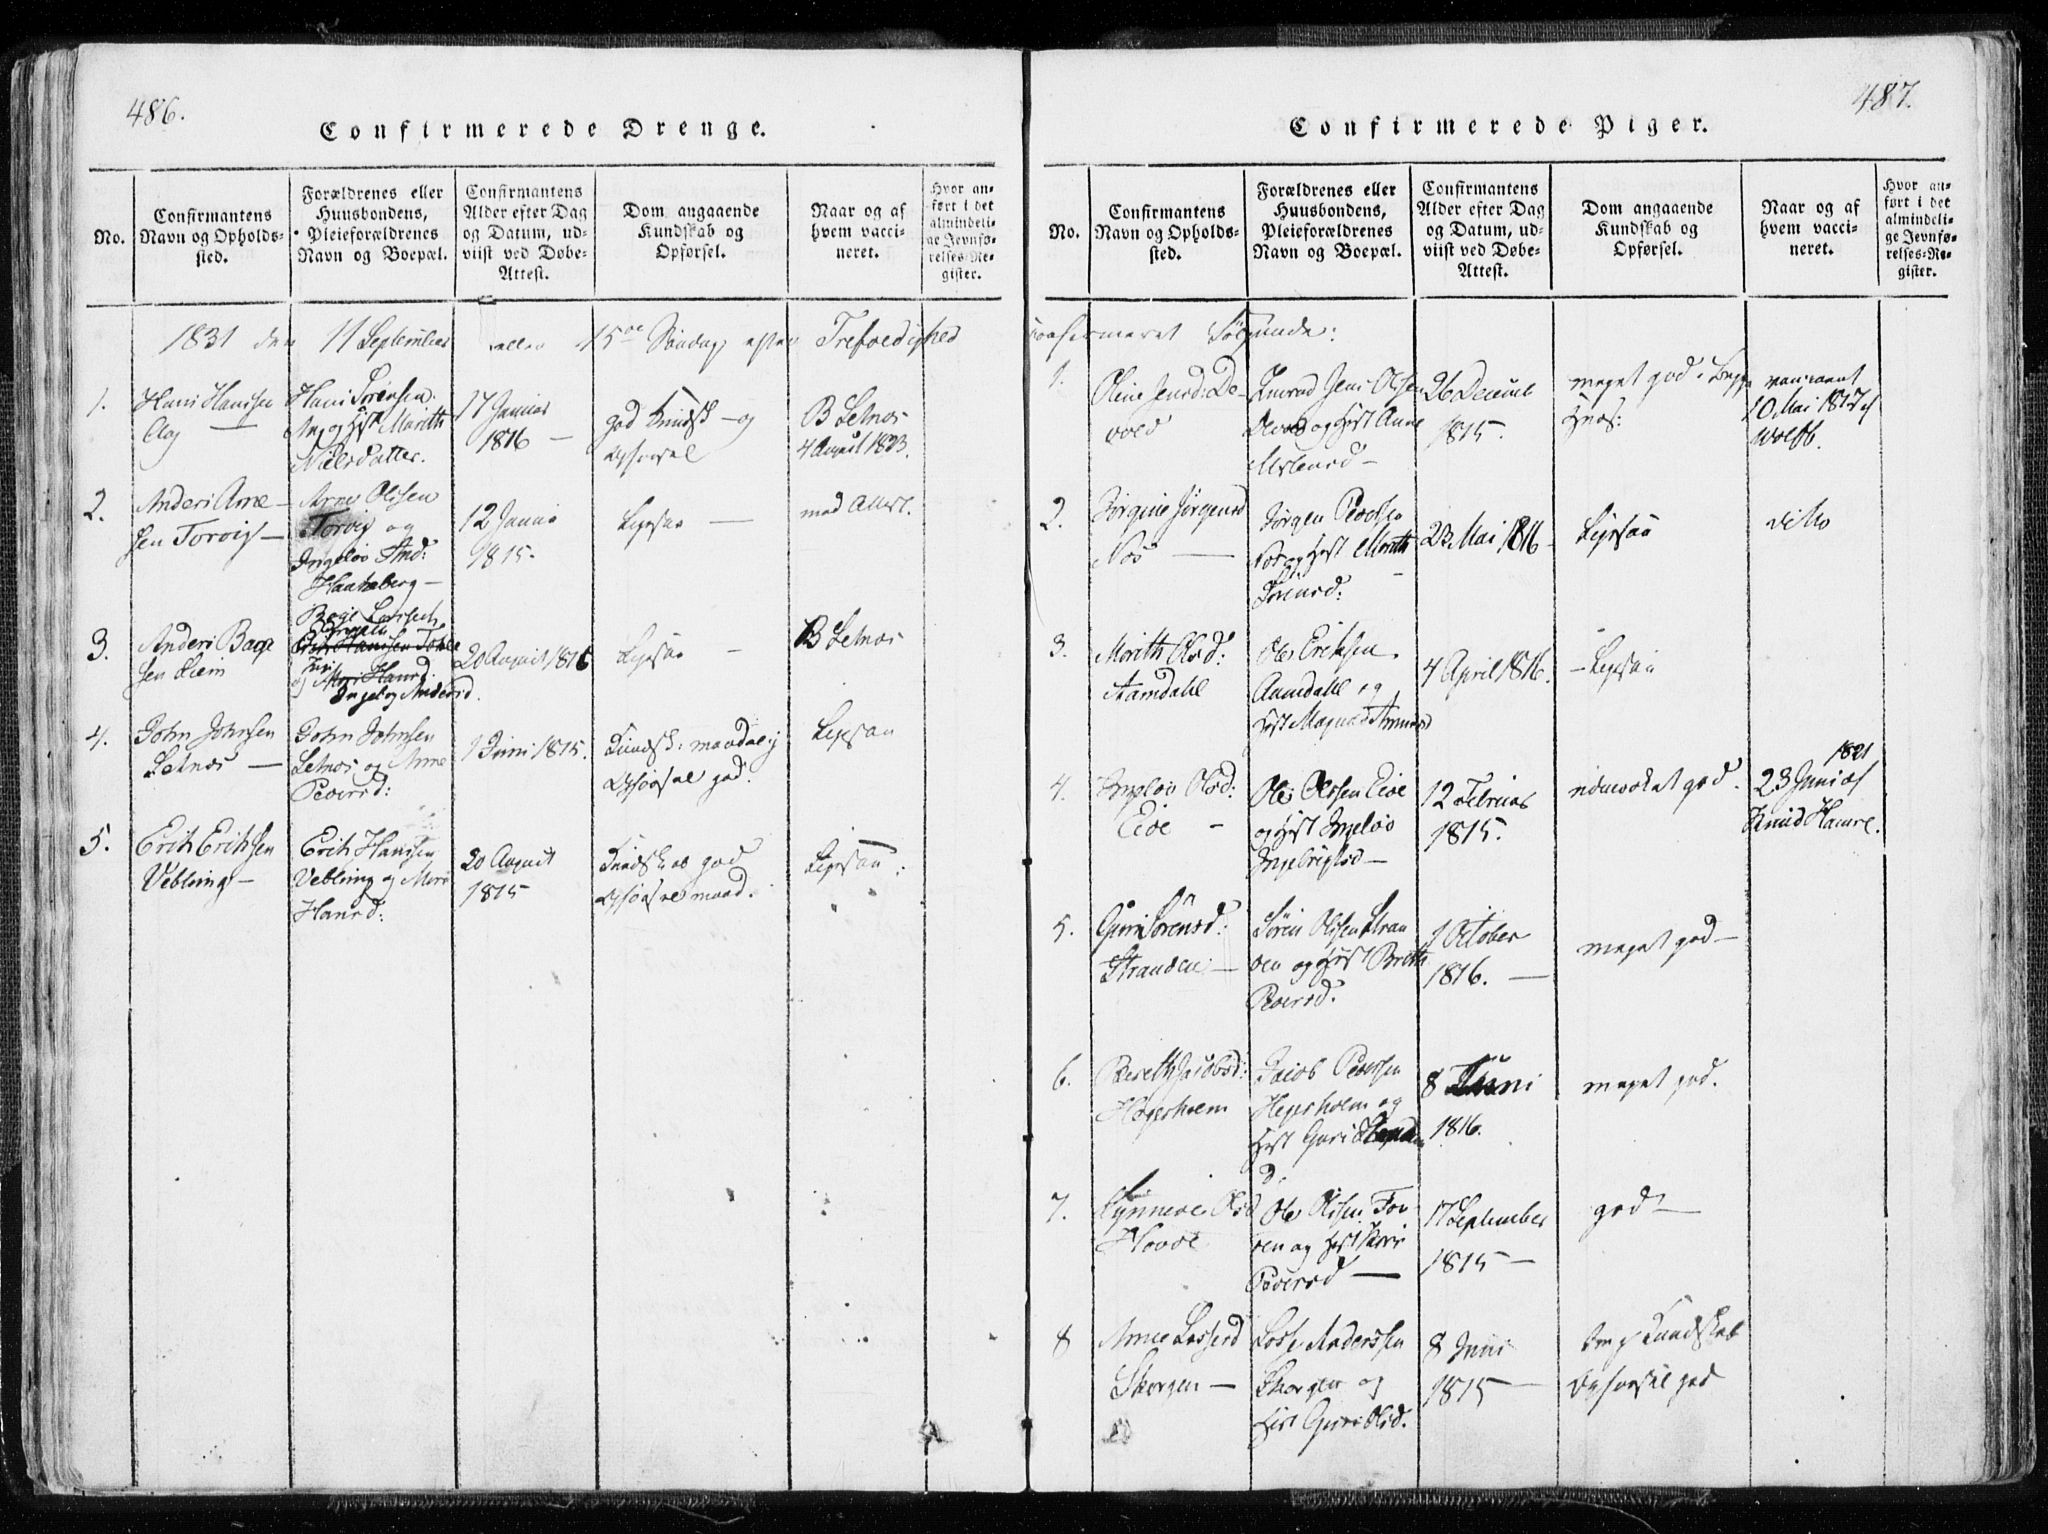 486.
Confirmerede Drenge.
No.
Confirmantens
Navn og Opholds-
sted.
Forældrenes eller
Huusbondens,
Pleieforældrenes
Navn og Boepæl.
Confirmantens
Alder efter Dag
og Datum, ud-
viist ved Døbe-
Attest.
Dom angaaende
Kundskab og
Opførsel.
Naar og af
hvem vacci-
neret.
Hvor an-
ført i det
almindeli-
ge Jevnfø-
relses-Re-
gister.
1831 den 11 September 15de Søndag efter Trefoldighed
1.
Hans Hansen
Hans Sørensen
og Hst Marith
Nielsdatter.
17 Januar
1816 —
god Kundsk — og
B Setnos
4 August 1823.
2.
Anders Arne-
sen Torvig —
Arne Olsen
Torvig og
Ingeløv And:
12
1815.
Ligesaa —
med Attest.
3.
Anders Bage
sen Liem
Ingeløv Andersd.
20 August 1816
Ligesaa —
B Setnos
4.
John Johnsen
Setnos —
John Johnsen
Setnos og Anne
Pedersd:
1 Juni 1815.
Kundsk: maadelig
god.
Ligesaa
5.
Erik Eriksen
Vebling —
Erik Hansen
Vebling og
Hansd:
20 August
1815
Kundskab god
maad.
Ligesaa.
487.
Confirmerede Piger.
No.
Confirmantens
Navn og Opholds-
sted.
Forældrenes eller
Huusbondens,
Pleieforældrenes
Navn og Boepæl.
Confirmantens
Alder efter Dag
og Datum, ud-
viist ved Døbe-
Attest.
Dom angaaende
Kundskab og
Opførsel.
Naar og af
hvem vacci-
neret.
Hvor an-
ført i det
almindeli-
ge Jevnfø-
relses-Re-
gister.
confirmeret Følgende:
1.
Oline Jensd: De-
vold
Jens Olsen
Devold og Hst Anne
26 Decemb
1815.
meget god i Begge
10 Mai 1817 af
Wolff.
2.
Jørgine Jørgensd
Nøs —
Jørgen Peders
og Hst Marith
Sørensd:
23 Mai 1816
Ligesaa
ditto
3.
Marith Olsd:
Aamdahl
Ole Eriksen
Aamdahl og
Hst
4 April 1816.
— Ligesaa
4.
Ingeløv Olsd:
Eide —
Ole Olssen Eide
og Hst Ingeløv
Ingebrigtsd —
12 Februar
1815.
udmærket god.
1821
23 Juni af
Knud Hamre.
5.
Guri Sørensd:
Stranden —
Søren Olssen Stran
den og Hst Brith
Pedersd.
1 October
1816. —
meget god —
6.
Bereth Jacobsd:
Hegerholm
Jacob Pedersen
Hegerholm og
Hst Guri
d.
8 Juni
1816.
meget god.
7.
Synneve Olsd
Hovde
Ole Olssen
og Hst
Pedersd —
17 September
1815 —
god —
8
Anne Lassesd
Skorgen —
Lasse Anderssen
Skorgen og
Hst Guri Olsd.
8 Juni
1815 —
Kundskab
Opførsel god